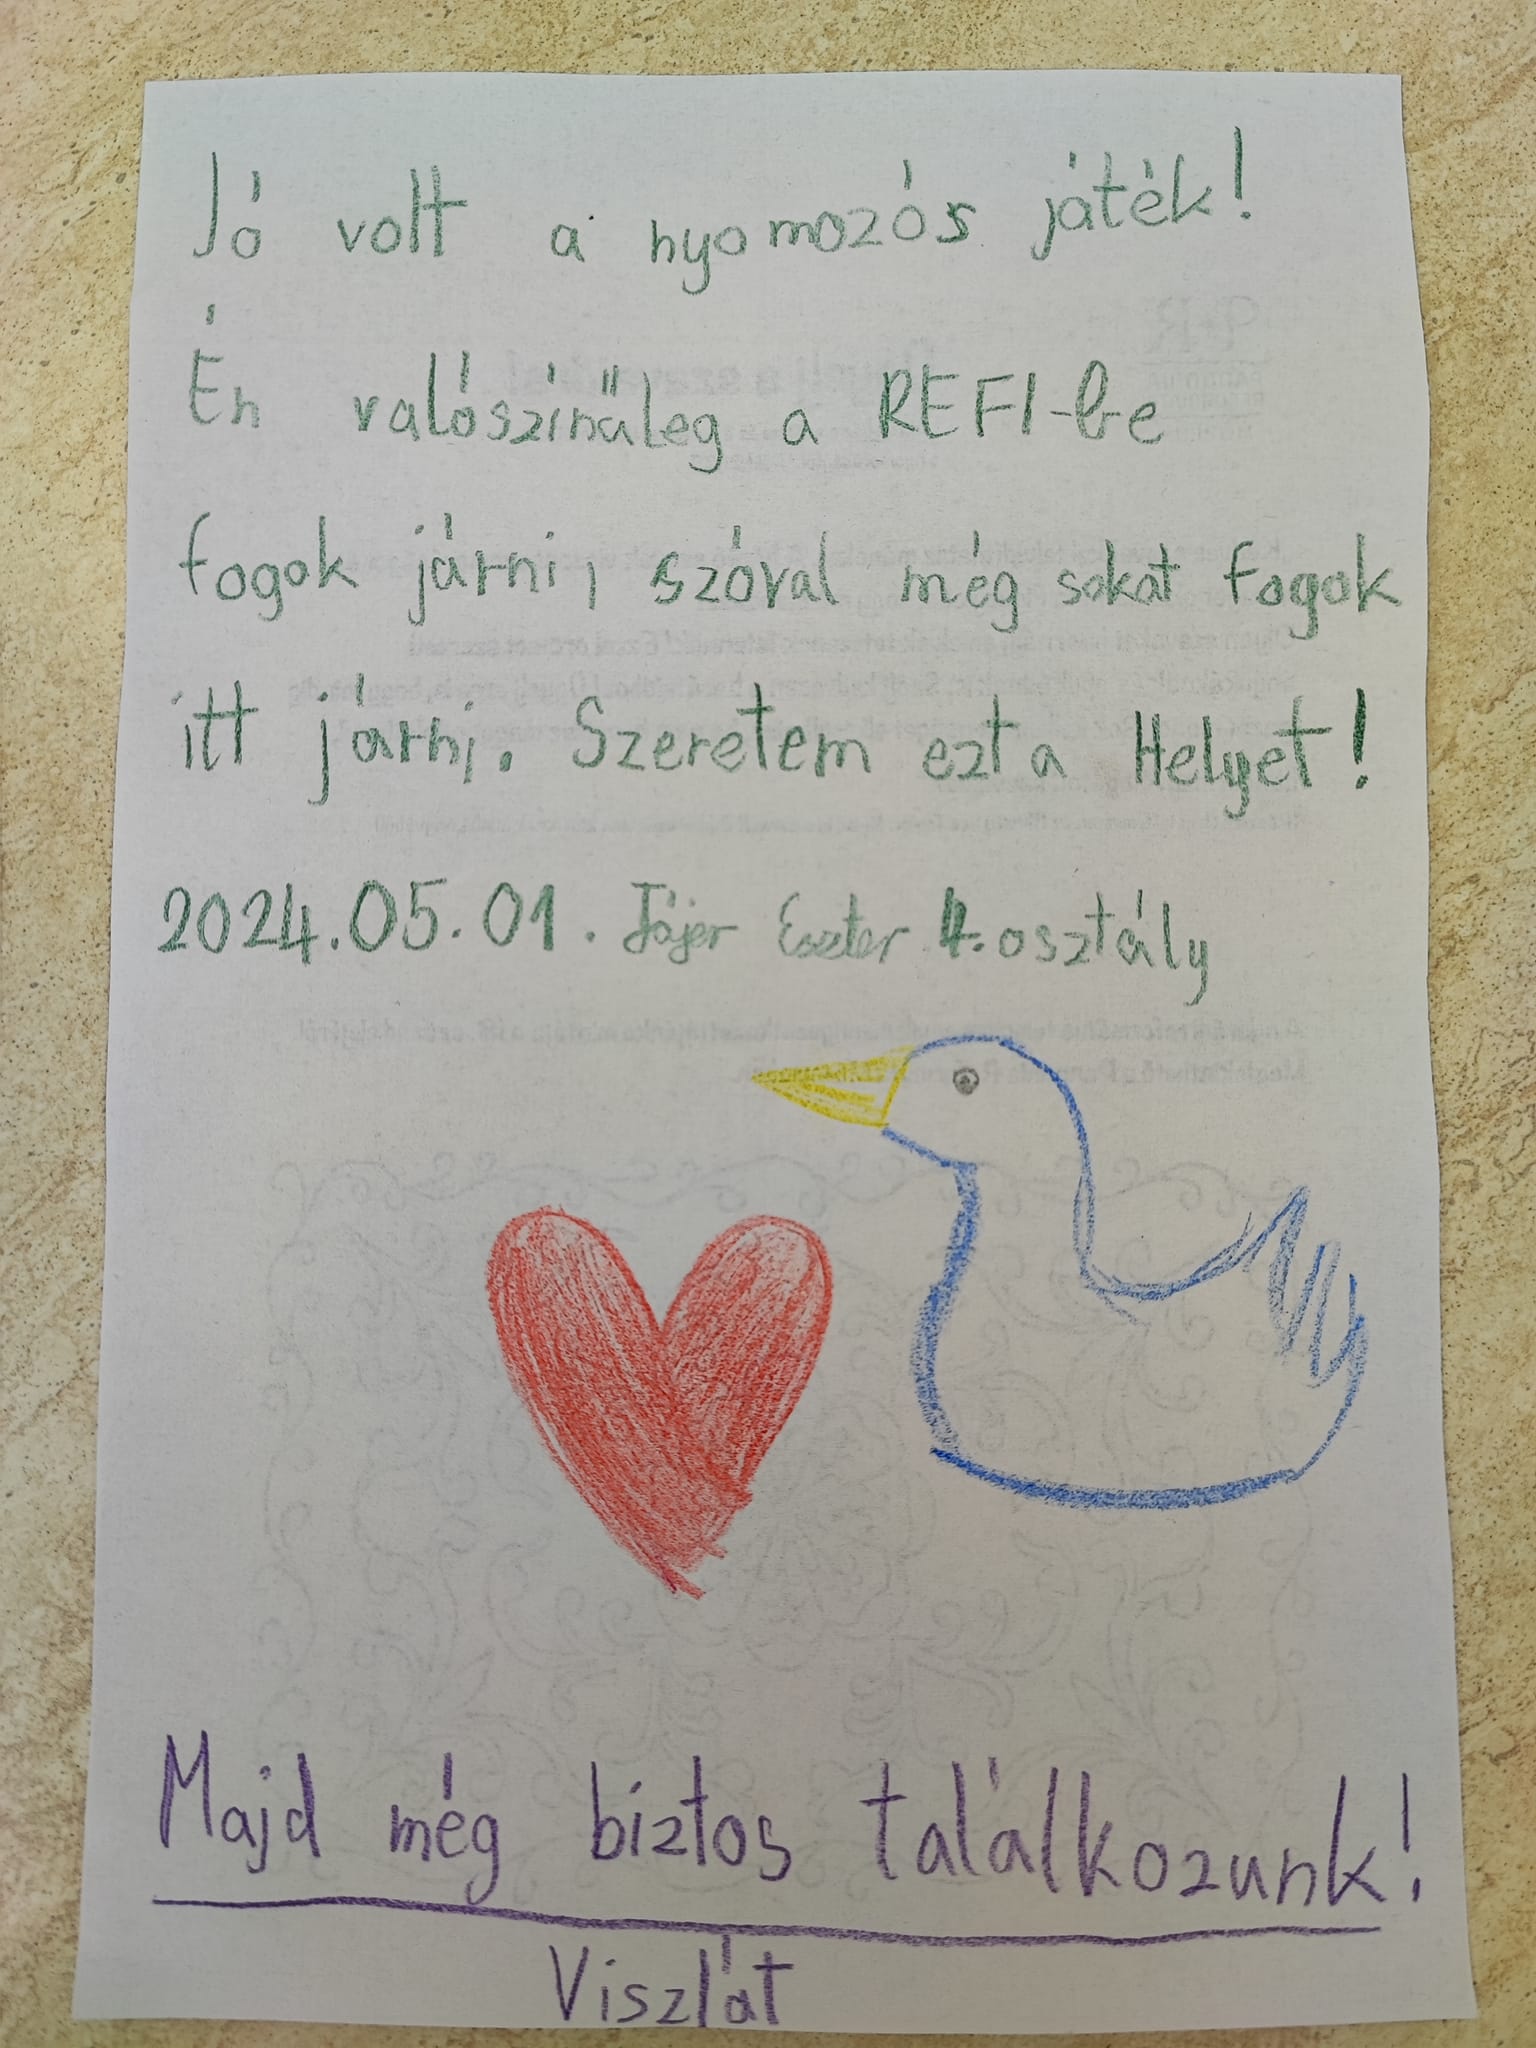 Jó volt a nyomozós játék!
Én valószínűleg a REFI-be
fogok járni, szóval még sokat fogok
itt járni. Szeretem ezt a Helyet!
2024.05.01. Jájer Eszter 4. osztály
Majd még biztos találkozunk!
Viszlát